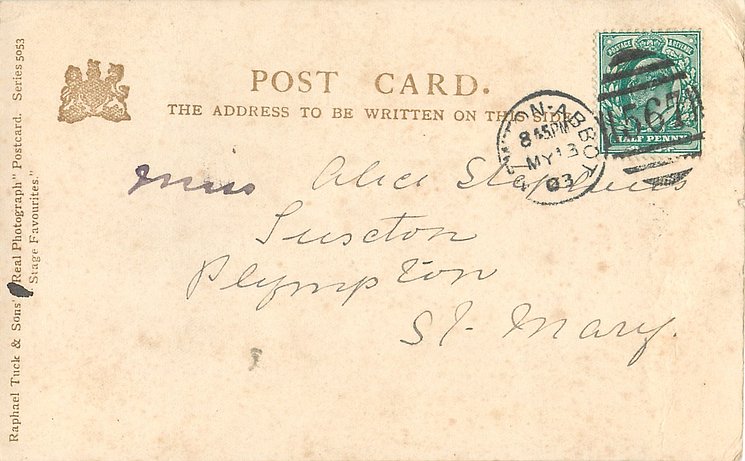 POST CARD.
THE ADDRESS TO BE WRITTEN ON THIS SIDE
POSTAGE REVENUE
HALF PENNY
567
NEWTON-ABBOT
8 45PM
MY 13
03
Miss Alice Stephens
Plympton
St. Mary.
Raphael Tuck & Sons' "Real Photograph" Postcard. Series 5053
"Stage Favourites."